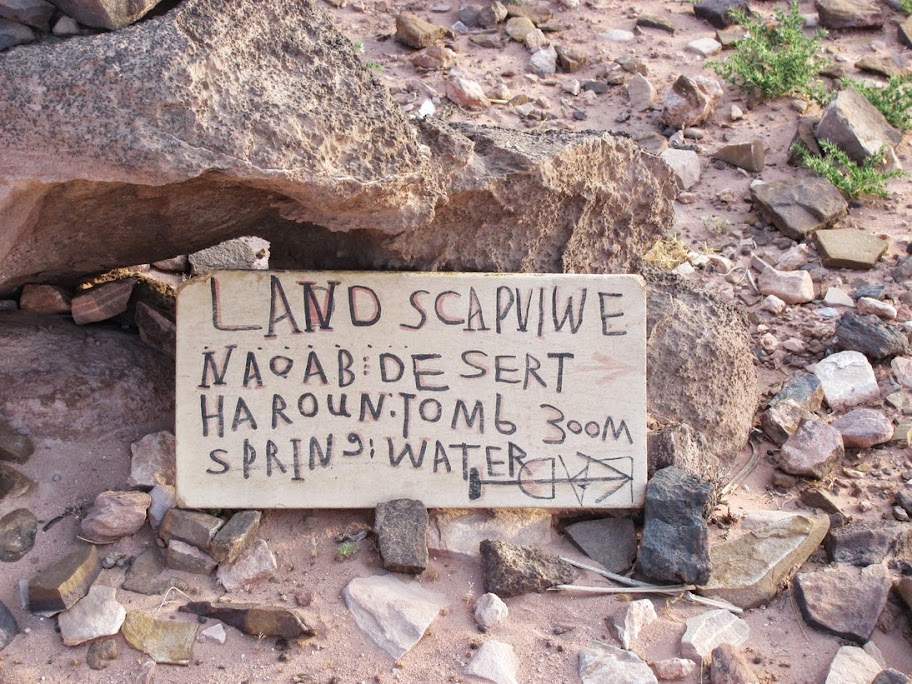 LAND SCAPVIWE
NAQAB:DESERT
HAROUN:TOMb 300M
SPRING:WATER